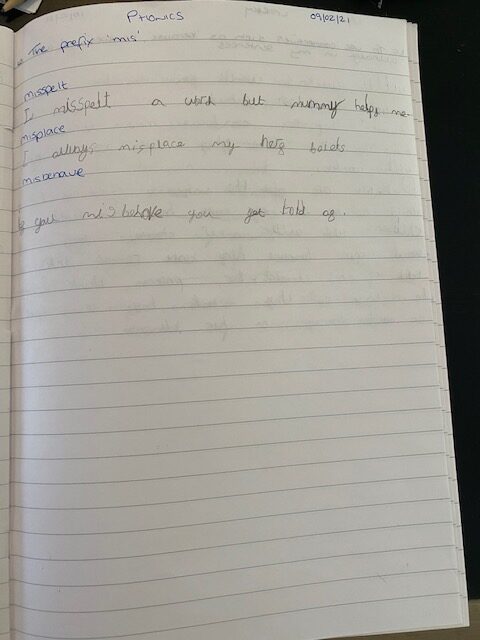 Phonics 09/02/21
The prefix 'mis'
misspelt
I misspelt a word but mummy helps me.
misplace
I allways misplace my
misbehave
you misbehave you get told of.